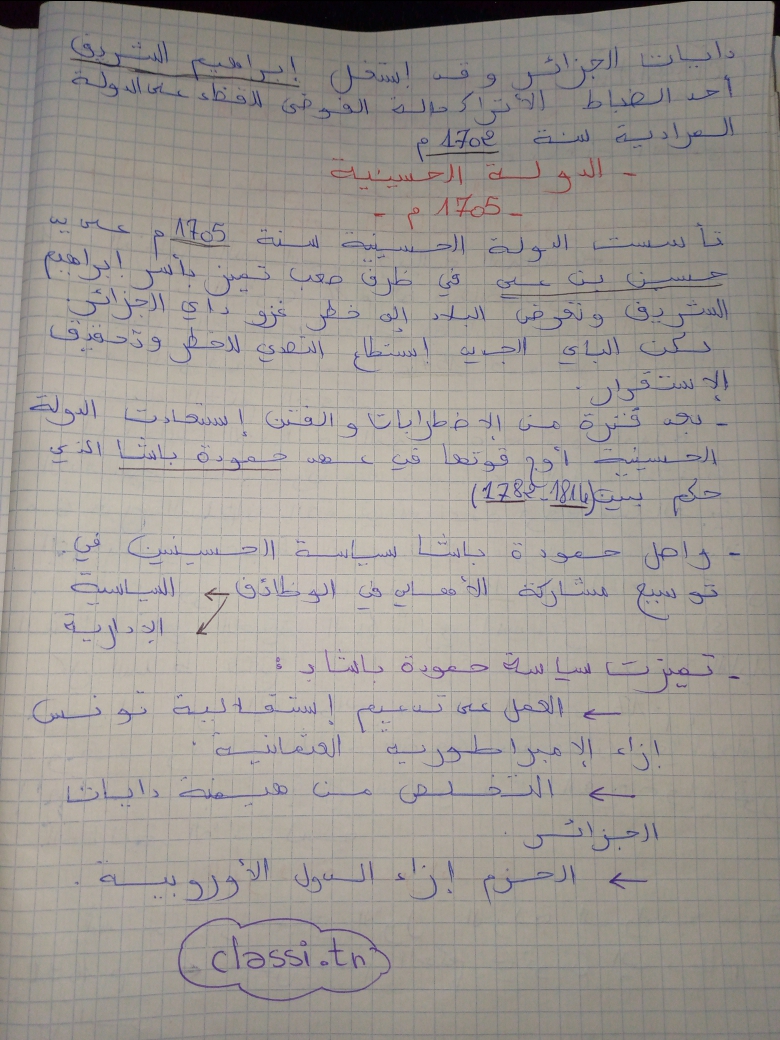 دايات الجزائر وقد إستغل إبراهيم الشريف
أحد الضباط الأتراك حالة الفوضى للقضاء على الدولة
المرادية سنة 1702 م
- الدولة الحسينية
- 1705 م -
تأسست الدولة الحسينية سنة 1705 م على يد
حسين بن علي في ظرف صعب تميز بأسر إبراهيم
الشريف وتعرض البلاد إلى خطر غزو داي الجزائر
لكن الباي الجديد إستطاع التصدي للخطر وتحقيق
الإستقرار.
- بعد فترة من الإضطرابات والفتن إستعادت الدولة
الحسينية أوج قوتها في عهد حمودة باشا الذي
حكم بين (1782-1814)
- واصل حمودة باشا سياسة الحسينين في:
توسيع مشاركة الأهالي في الوظائف ← السياسية
الإدارية
- تميزت سياسة حمودة باشا بـ:
← العمل على تدعيم إستقلالية تونس
إزاء الإمبراطورية العثمانية.
← التخلص من هيمنة دايات
الجزائر.
← الحزم إزاء الدول الأوروبية.
classi.tn